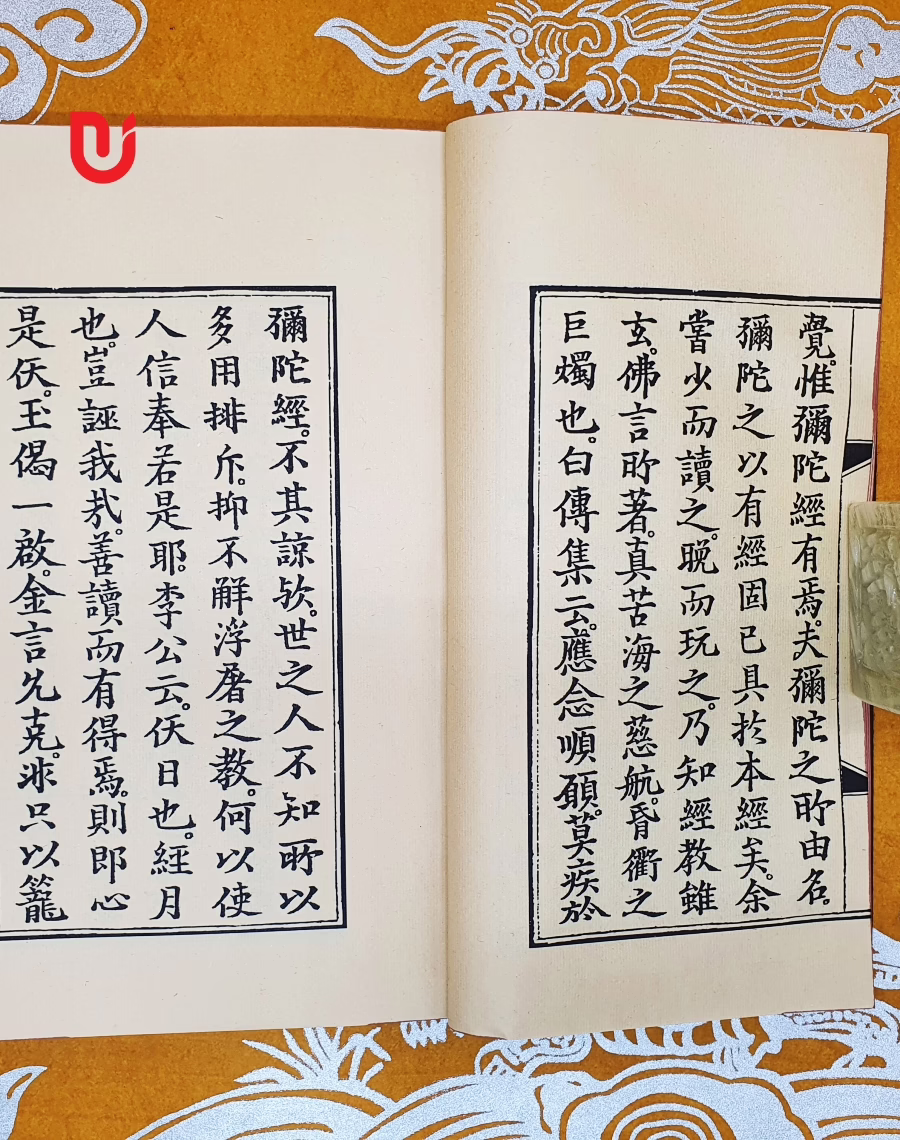 覺。惟彌陀經有焉。夫彌陀之所由名。
彌陀之以有經固已具扵本經矣。余
嘗少而讀之。晚而玩之。乃知經教雖
玄。佛言所著。真苦海之慈航。昏衢之
巨燭也。白傳集云。應念順願。莫疾於
彌陀經。不其諒欤。世之人不知所以
多用排斥。抑不觧浮屠之教。何以使
人信奉若是耶。李公云。仸日也。經月
也。豈誣我哉。善讀而有得焉。則即心
是仸。玉偈一啟。金言克。只以籠